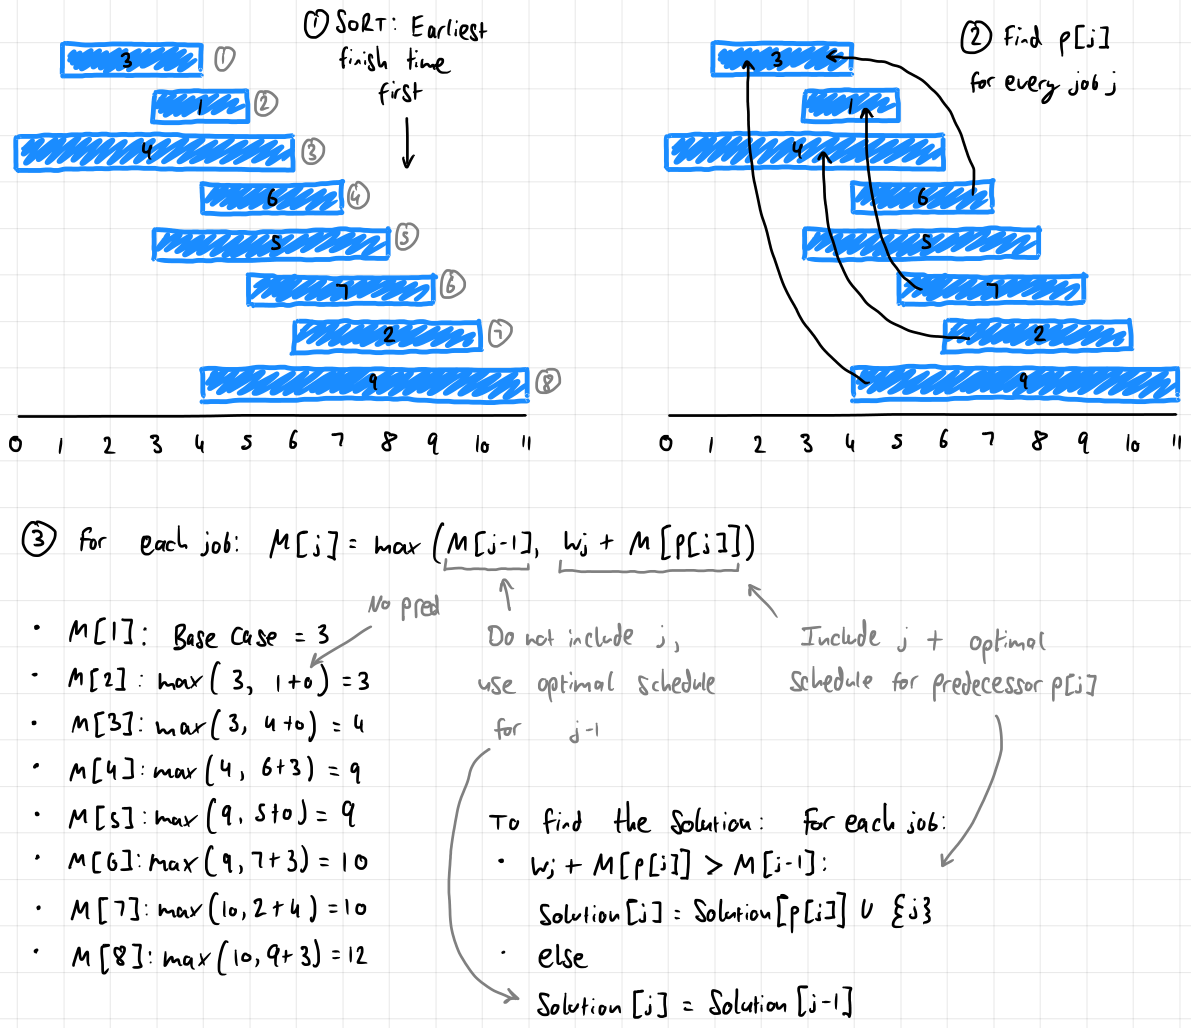 ① SORT: Earliest
finish time
first
3 ①
1 ②
4 ③
6 ④
5 ⑤
7 ⑥
2 ⑦
9 ⑧
0 1 2 3 4 5 6 7 8 9 10 11
② Find p[j]
for every job j
3
1
4
6
5
7
2
9
0 1 2 3 4 5 6 7 8 9 10 11
③ For each job: M[j] = max(M[j-1], Wj + M[p[j]])
No pred
Do not include j,
use optimal schedule
for j-1
Include j + optimal
schedule for predecessor p[j]
• M[1]: Base Case = 3
• M[2]: max(3, 1+0) = 3
• M[3]: max(3, 4+0) = 4
• M[4]: max(4, 6+3) = 9
• M[5]: max(9, 5+0) = 9
• M[6]: max(9, 7+3) = 10
• M[7]: max(10, 2+4) = 10
• M[8]: max(10, 9+3) = 12
To find the Solution: For each job:
• Wj + M[p[j]] > M[j-1]:
Solution[j] = Solution[p[j]] ∪ {j}
• else
Solution[j] = Solution[j-1]